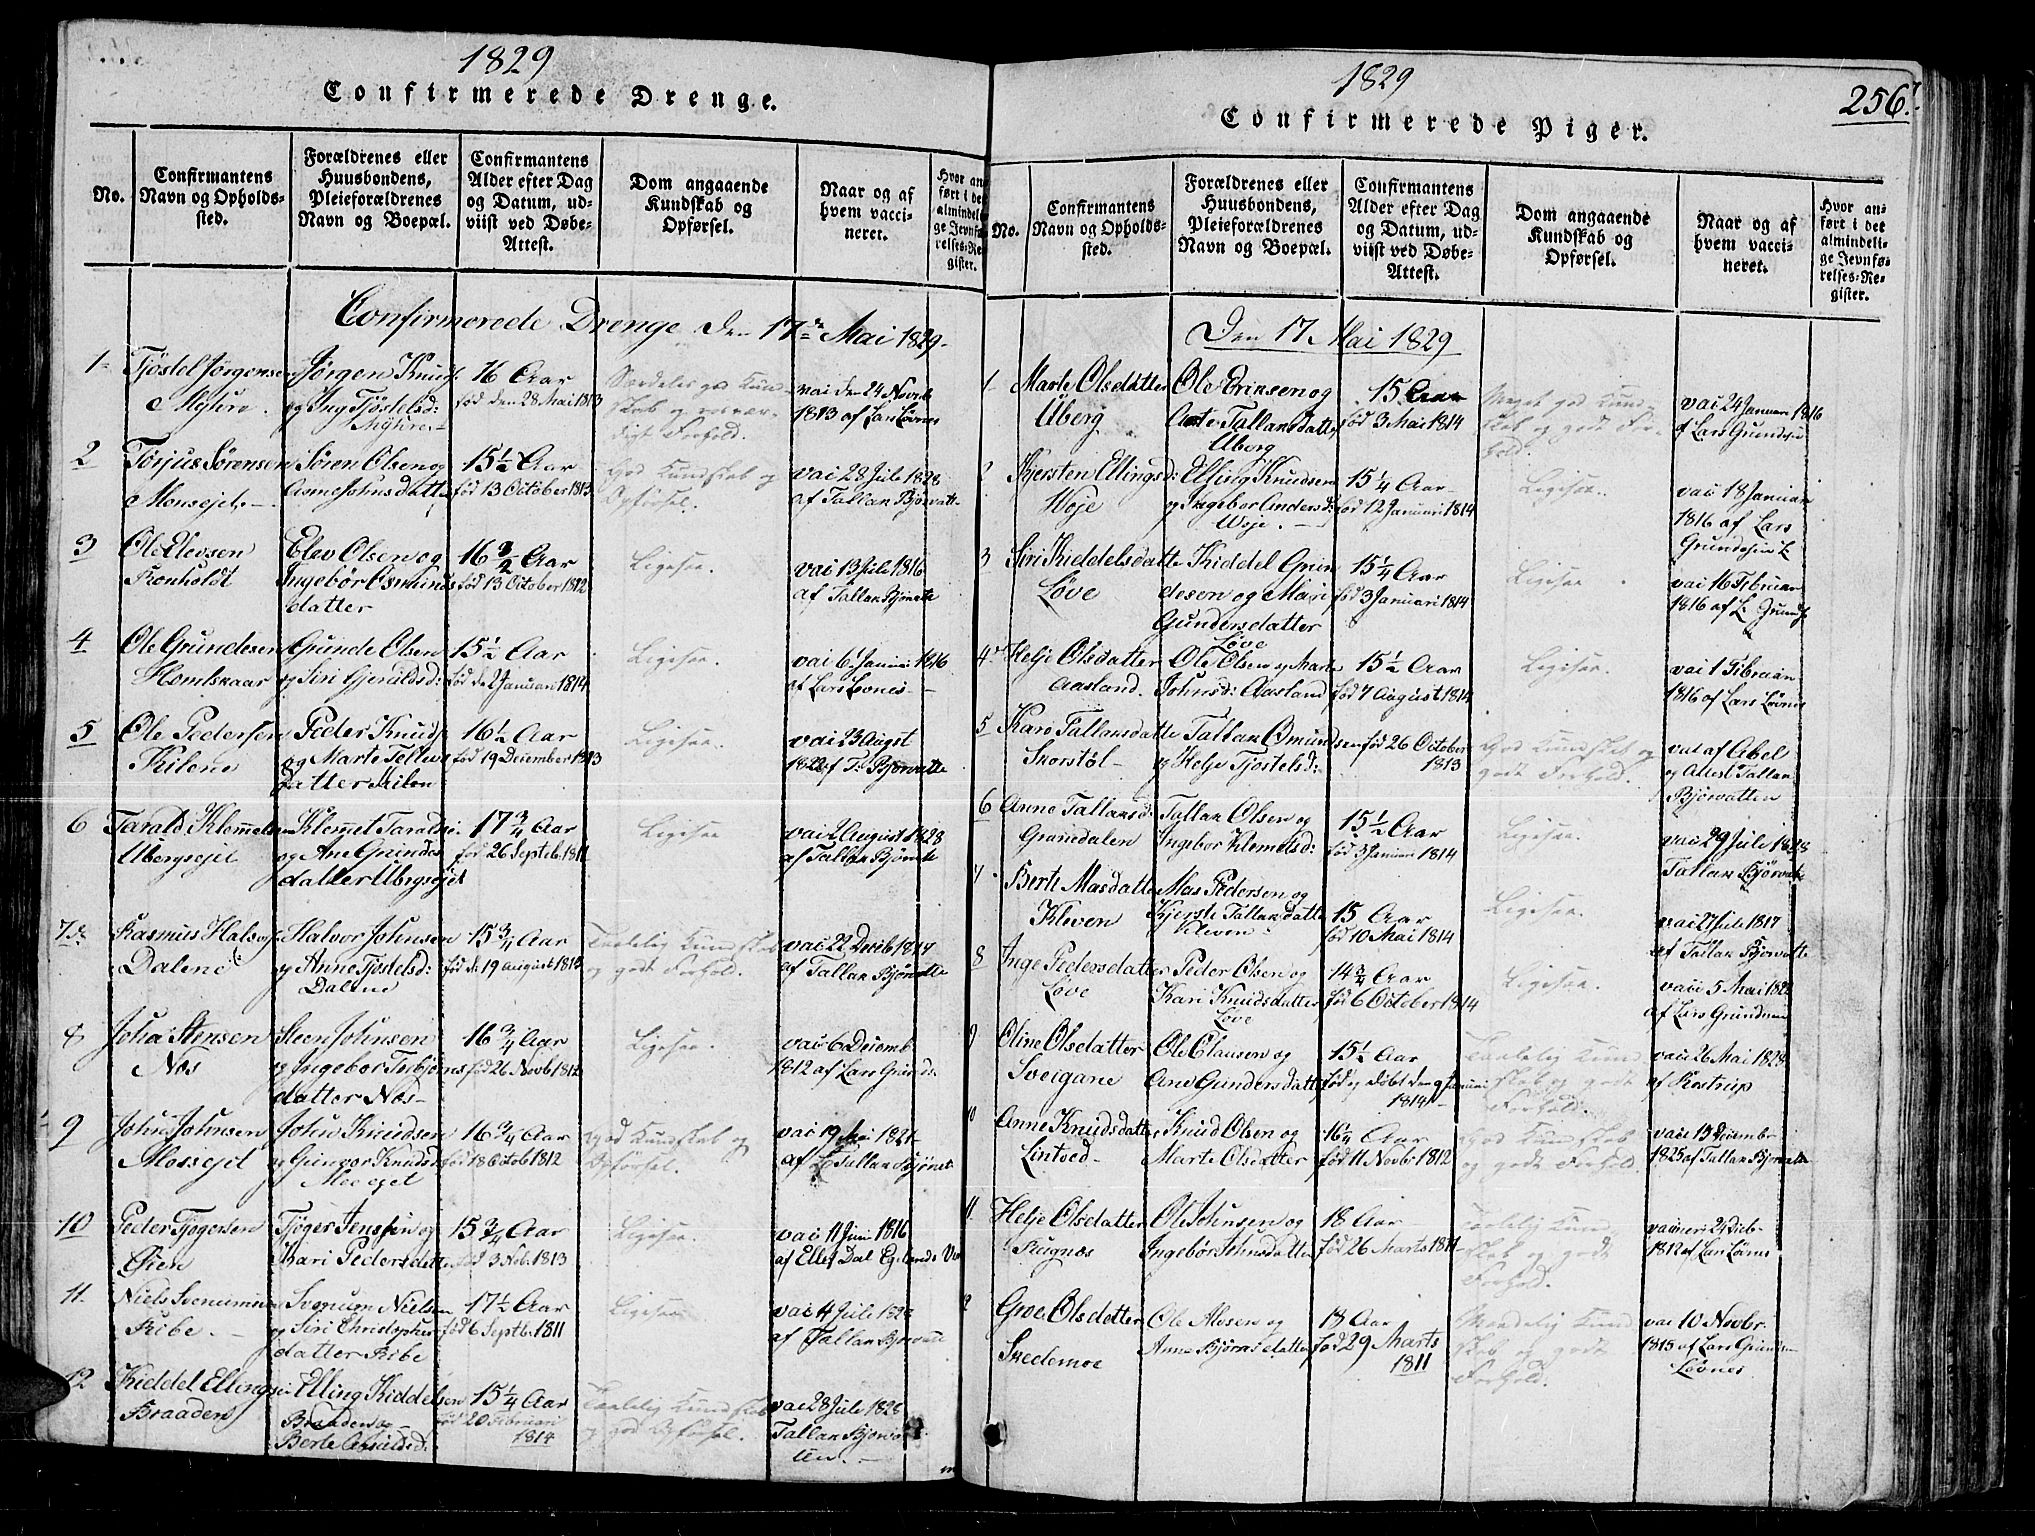 1829
Confirmerede Drenge.
No.
Confirmantens
Navn og Opholds-
sted.
Forældrenes eller
Huusbondens,
Pleieforældrenes
Navn og Boepæl.
Confirmantens
Alder efter Dag
og Datum, ud-
viist ved Døbe-
Attest.
Dom angaaende
Kundskab og
Opførsel.
Naar og af
hvem vacci-
neret.
Hvor an-
ført i det
almindeli-
ge Jevnfø-
relses-Re-
gister.
Confirmerede Drenge den 17de Mai 1829.
1
Tjöstel Jörgensen
Myhre.
Jörgen Knuds
og Ing Tjöstelsd:
Myhre
16 Aar
født den 28 Mai 1813
Særdeles god Kund-
skab og
digt Forhold.
vai den 24 Novb
1813 af Lars Lövnes
2
Torjus Sörensen
Monsejet
Sören Olsen og
Asme Johnsdatter
15 1/2 Aar
født 13 October 1813
God Kundskab og
Opførsel.
vai 28 Juli 1828
af Tallak Björvatte
3
Ole Elevsen
Ronholdt
Elev Olsen og
Ingebör Osmunds
datter
16 3/2 Aar
født 13 October 1812
Ligesaa.
vai 13 Juli 1816
af Tallak Björvatte
4
Ole Grundesen
Homlskaar
Grunde Olsen
og Siri Gjeruldsd:
15 1/2 Aar
født de 2 Januari 1814
Ligesaa.
vai 6 Januari 1816
af Lars Lövnes
5
Ole Pedersen
Kilene
Peder Knuds
og Marte Tellevs
datter Kilen
16 1/2 Aar
født 19 December 1813
Ligesaa.
vai 23 August
1822 af T: Björvatte
6
Tarald Klemmetsen
Ubergsejet
Klemmet Taralds
og Ane Grundes
datter Ubergsejet
17 3/4 Aar
født 26 Septeb. 1811
Ligesaa
vai 2 August 1828
af Tallak Björvatte
7de
Rasmus Halvors
Dalene
Halvor Johnsen
og Anne Tjöstelsd:
Dalene
15 3/4 Aar
født de 19 August 1813
Taalelig Kundskab
og godt Forhold.
vai 22 Decb 1817
af Tallak Björvatte
8
Joha Stensen
Næs
Steen Johnsen
og Ingebor Torbjöns
datter Næs
16 3/4 Aar
født 26 Novb 1812
Ligesaa.
vai 6 Decemb
1812 af Lars Grunds:
9
John Johnsen
Mossejet
John Knudsen
og Gunvor Knudsd
16 3/4 Aar
født 18 Octob 1812
God Kundskab og
Opførsel.
vai 19 Mai 1821
af Tallak Björvat
10
Peder Tjögersen
Öien
Tjöger Jenssen og
Mari Pedersdatter
15 3/4 Aar
født 3 Nob. 1813
Ligesaa.
vai 11 Juni 1816
af Ellef Dal Egelands V
11.
Niels Svenumsen
Ribe.
Svenum Nielsen
og Siri Christopher
datter Ribe
17 1/2 Aar
født 6 Septb. 1811
Ligesaa
vai 4 Juli 1828
af Tallak Björvatte
12
Kieddel Ellingsen
Braaden
Elling Kiddelsen
Braaden og
Berte Asuldsd:
15 1/4 Aar
født 20 Februari
1814
Taalelig Kundskab
og god Opførsel.
vai 28 Juli 1828
Tallak Björvat
ten.
1829
256.
Confirmerede Piger.
No.
Confirmantens
Navn og Opholds-
sted.
Forældrenes eller
Huusbondens,
Pleieforældrenes
Navn og Boepæl.
Confirmantens
Alder efter Dag
og Datum, ud-
viist ved Døbe-
Attest.
Dom angaaende
Kundskab og
Opførsel.
Naar og af
hvem vacci-
neret.
Hvor an-
ført i det
almindeli-
ge Jevnfø-
relses-Re-
gister.
Den 17. Mai 1829
1
Marte Olsdatter
Uberg
Ole Eriksen og
Aste Tallaksdatter
Uberg
15 Aar
født 3 Mai 1814
Meget god Kund-
skab og godt For-
hold.
vai 24 Januari 1816
af Lars Grundsen
2
Kjersten Ellingsd:
Woje
Elfsig Knudsen
og Ingebor Andersd:
Woje.
15 1/4 Aar
født 12 Januari 1814
Ligesaa.
vai 18 Januari
1816 af Lars
Grundesen L
3
Siri Kieddelsdatte
Löve
Kiddel Grun
desen og Mari
Gundersdatter
Löve
15 1/4 Aar
født 3 Januari 1814
Ligesaa
vai 16 Februari
1816 af L. Grunds
4
Helje Olsdatter
Aasland.
Ole Olsen og Marte
Johnsd: Aasland
15 1/2 Aar
født 7 August 1814
Ligesaa.
vai 1 Februari
1816 af Lars Lövnes
5
Karo Tallaksdatte
Skorstöl
Tallak Omundsen
og Helje Tjöstelsd:
født 26 October
1813
God Kundskab og
godt Forhold.
vai af Abel
og Attest Tallak
Björvatten
6
Anne Tallaksd:
Granedalen
Tallak Olsen og
Ingebor Klemetsd:
15 1/2 Aar
født 3 Januari 1814
Ligesaa.
vai 29 Juli 1828
Tallak Björvatte
7
Berte Masdatter
Kleven
Mas Pedersen og
Kjerste Tallaksdatte
Kleven
15 Aar
født 10 Mai 1814
Ligesaa.
vai 27 Juli 1817
af Tallak Björvatte
8
Inge Pedersdatter
Löve
Peder Olsen og
Kari Knudsdatter
Löve
14 3/4 Aar
født 6 October 1814
Ligesaa.
vai 5 Mai 1822
af Lars Grundsen
9
Oline Olsdatter
Sveigane
Ole Clausen og
Ane Gundersdatte
15 1/2 Aar
født og Döbt den 9 Januari
1814
Taalelig Kund
skab og godt
Forhold.
vai 26 Mai 1828
af Kostrup
10
Anne Knudsdatter
Lintved
Knud Olsen og
Marte Olsdatter
16 1/4 Aar
født 11 Novbr 1812
God Kundskab
og godt Forhold
vai 13 Decembr
1825 af Tallak Björvatte
11
Helje Olsdatter
Rugnæs
Ole Johnsen og
Ingebör Johnsdatter
18 Aar
født 26 Marts 1811
Taalelig Kund
skab og godt
Forhold.
vaineri 24 Decb
1812 af Lars Lövnes
12
Groe Olsdatter
Skedemoe
Ole Alvsen og
Anne Björnsdatter
18 Aar
født 29 Marts
1811
Maadelig Kund
skab og godt
Forhold.
vai 10 Novbr.
1815 af Lars Grunds
Lövnes